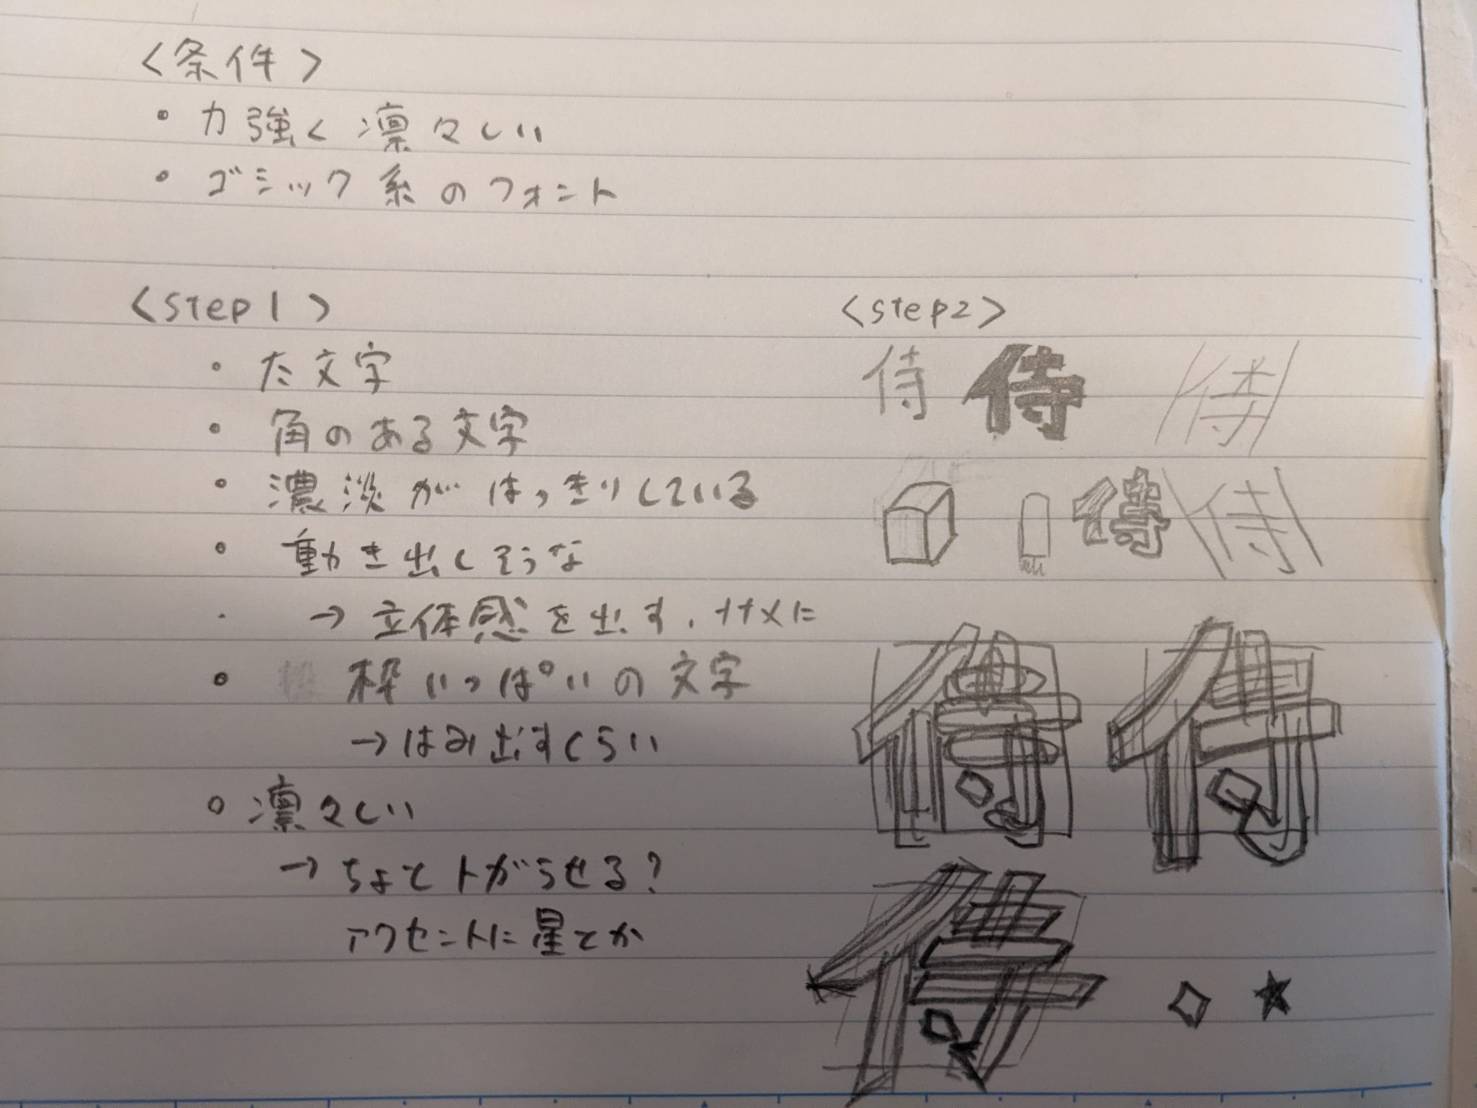 <条件>
・力強く凛々しい
・ゴシック系のフォント
<step1>
・太文字
・角のある文字
・濃淡がはっきりしている
・動き出しそうな
→立体感を出す.ナナメに
・枠いっぱいの文字
→はみ出すくらい
・凛々しい
→ちょとトがらせる?
アクセントに星とか
<step2>
侍 侍 侍
侍 侍
侍 侍
侍